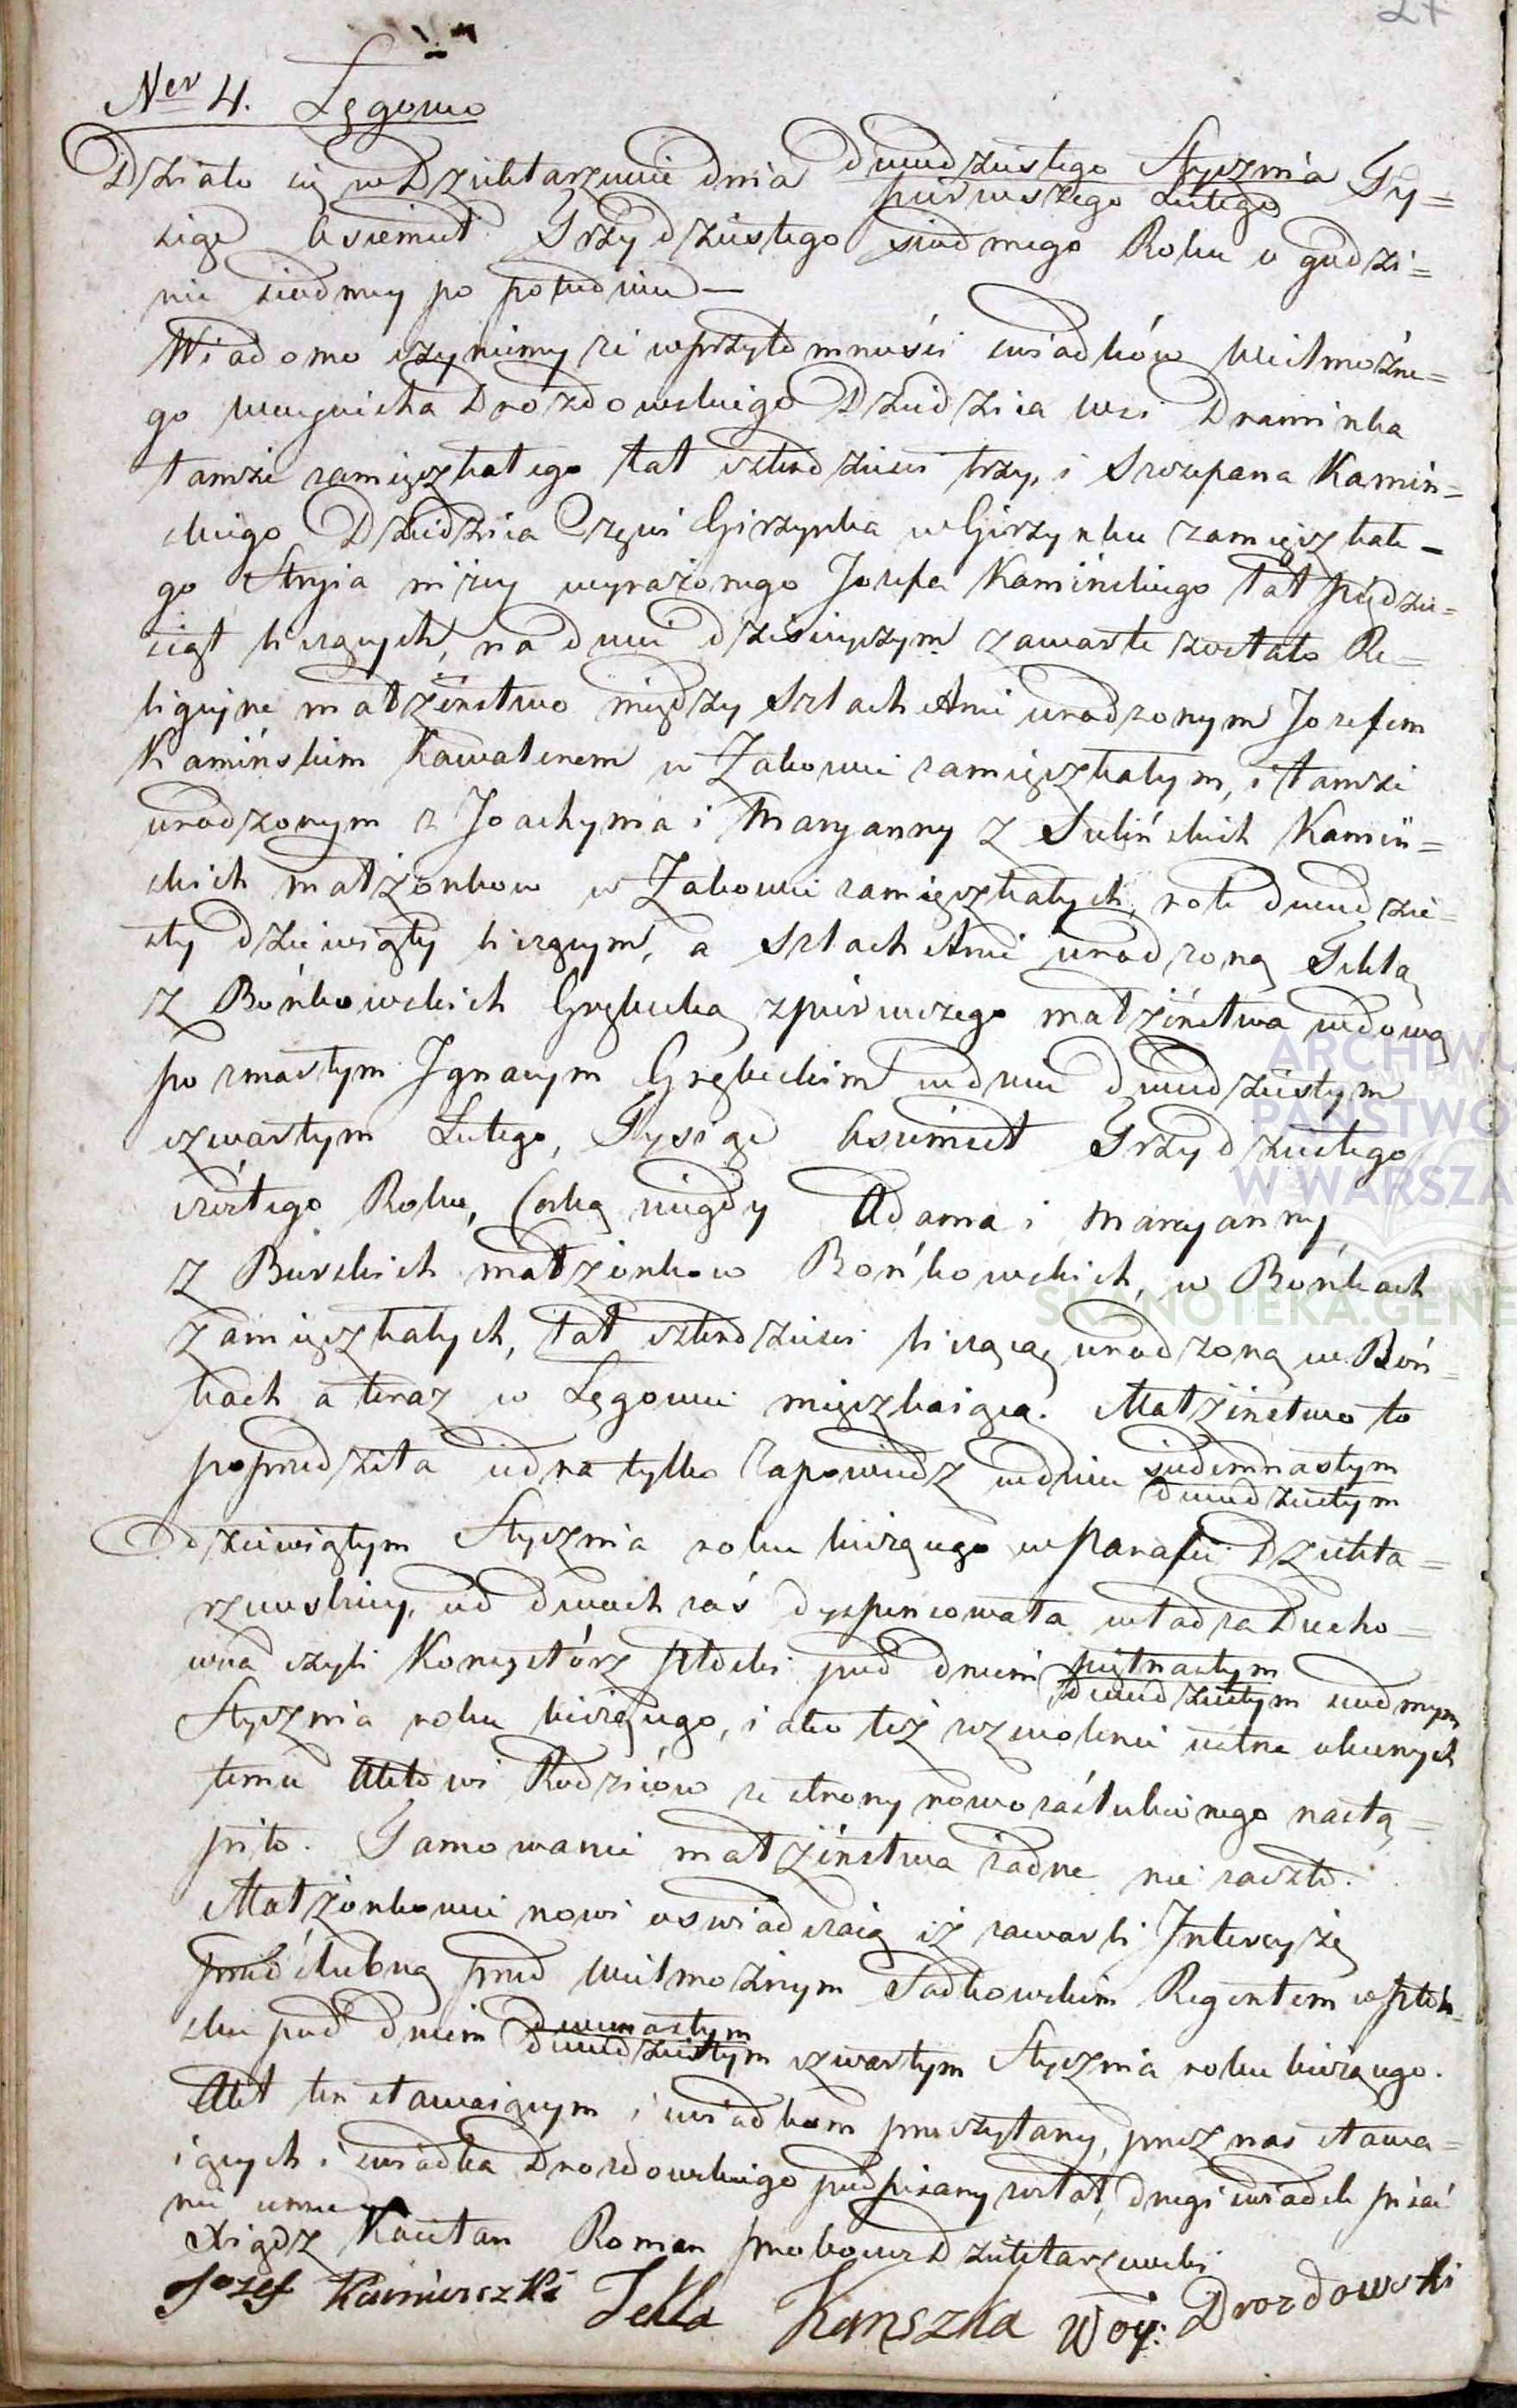 27
Ner 4. Łęgowo
Działo się w Dziektarzewie dnia dwudziestego Stycznia / pierwszego Lutego Ty=
siąc Osiemset Trzydziestego siodmego Roku o godzi=
nie siodmey po południu—
Wiadomo czyniemy że w przytomności swiadków Wielmożne=
go Woyciecha Drozdowskiego Dziedzica wsi Draminka
tamże zamięszkałego lat czterdzieści trzy, i Szczepana Kamiń=
skiego Dziedzica Częsci Girzynka w Girzynku zamięszkałe=
go Stryja niżey wyrażonego Jozefa Kaminskiego lat pięćdzie=
siąt liczących, na dniu dzisieyszym zawarte zostało Re=
ligijne małżeństwo między Szlachetnie urodzonym Jozefem
Kamińskim Kawalerem w Żakowie zamięszkałym, i tamże
urodzonym z Joachyma i Maryanny z Sulińskich Kamiń=
skich małżonkow w Żakowie zamięszkałych, rok dwudzie=
sty dziewiąty liczącym, a Szlachetnie urodzoną Teklą
z Bońkowskich Grębecką z pierwszego małżeństwa wdową
po zmarłym Ignacym Grębeckim w dniu dwudziestym
czwartym Lutego, Tysiąc Osiemset Trzydziestego
szóstego Roku, Corką niegdy Adama i Maryanny
z Burskich małżonkow Bońkowskich, w Bońkach
zamięszkałych, lat czterdzieści liczącą urodzoną w Boń=
kach a teraz w Łęgowie mięszkaiącą. Małżeństwo to
poprzedziła iedna tylko Zapowiedz w dniu siedemnastym / dwudziestym
dziewiątym Stycznia roku bieżącego w Parafii Dziekta=
rzewskiey, od dwoch zaś dyspensowała władza Ducho=
wna czyli Konsystórz Płocki pod dniem piętnastym / dwudziestym siodmym
Stycznia roku bieżącego, i ako też zezwolenie ustne obecnych
temu Aktowi Rodziców ze strony nowozaślubionego nastą=
piło. Tamowanie małżeństwa żadne nie zaszło.
Małżonkowie nowi oswiadczaią iż zawarli Intercyżę
przedślubną przed Wielmożnym Sadkowskim Regentem w Płoń=
sku pod dniem dwunastym / dwudziestym czwartym Stycznia roku bieżącego.
Akt ten stawaiącym i swiadkom przeczytany, przez nas stawa=
iących i swiadka Drozdowskiego podpisany został, drugi swiadek pisać
nie umie
Xiądz Kaietan Roman proboszcz Dziektarzewski
Jozef Kamieszki Tekla Kanszka Woy: Drozdowski
ARCHIWU
PAŃSTWO
W WARSZA
SKANOTEKA.GENE